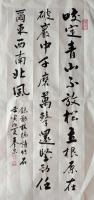 咬定青山不放松立根原在
破巖中千磨萬擊還堅勁任
爾東西南北風